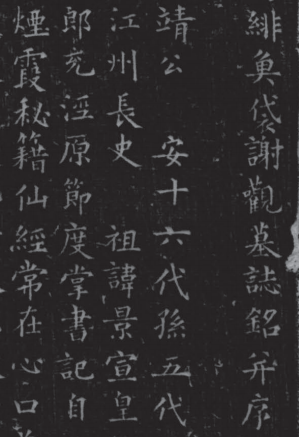 緋魚袋謝觀墓誌銘并序
靖公 安十六代孫五代
江州長史 祖諱景宣皇
郎充涇原節度掌書記自
煙霞秘籍仙經常在心口